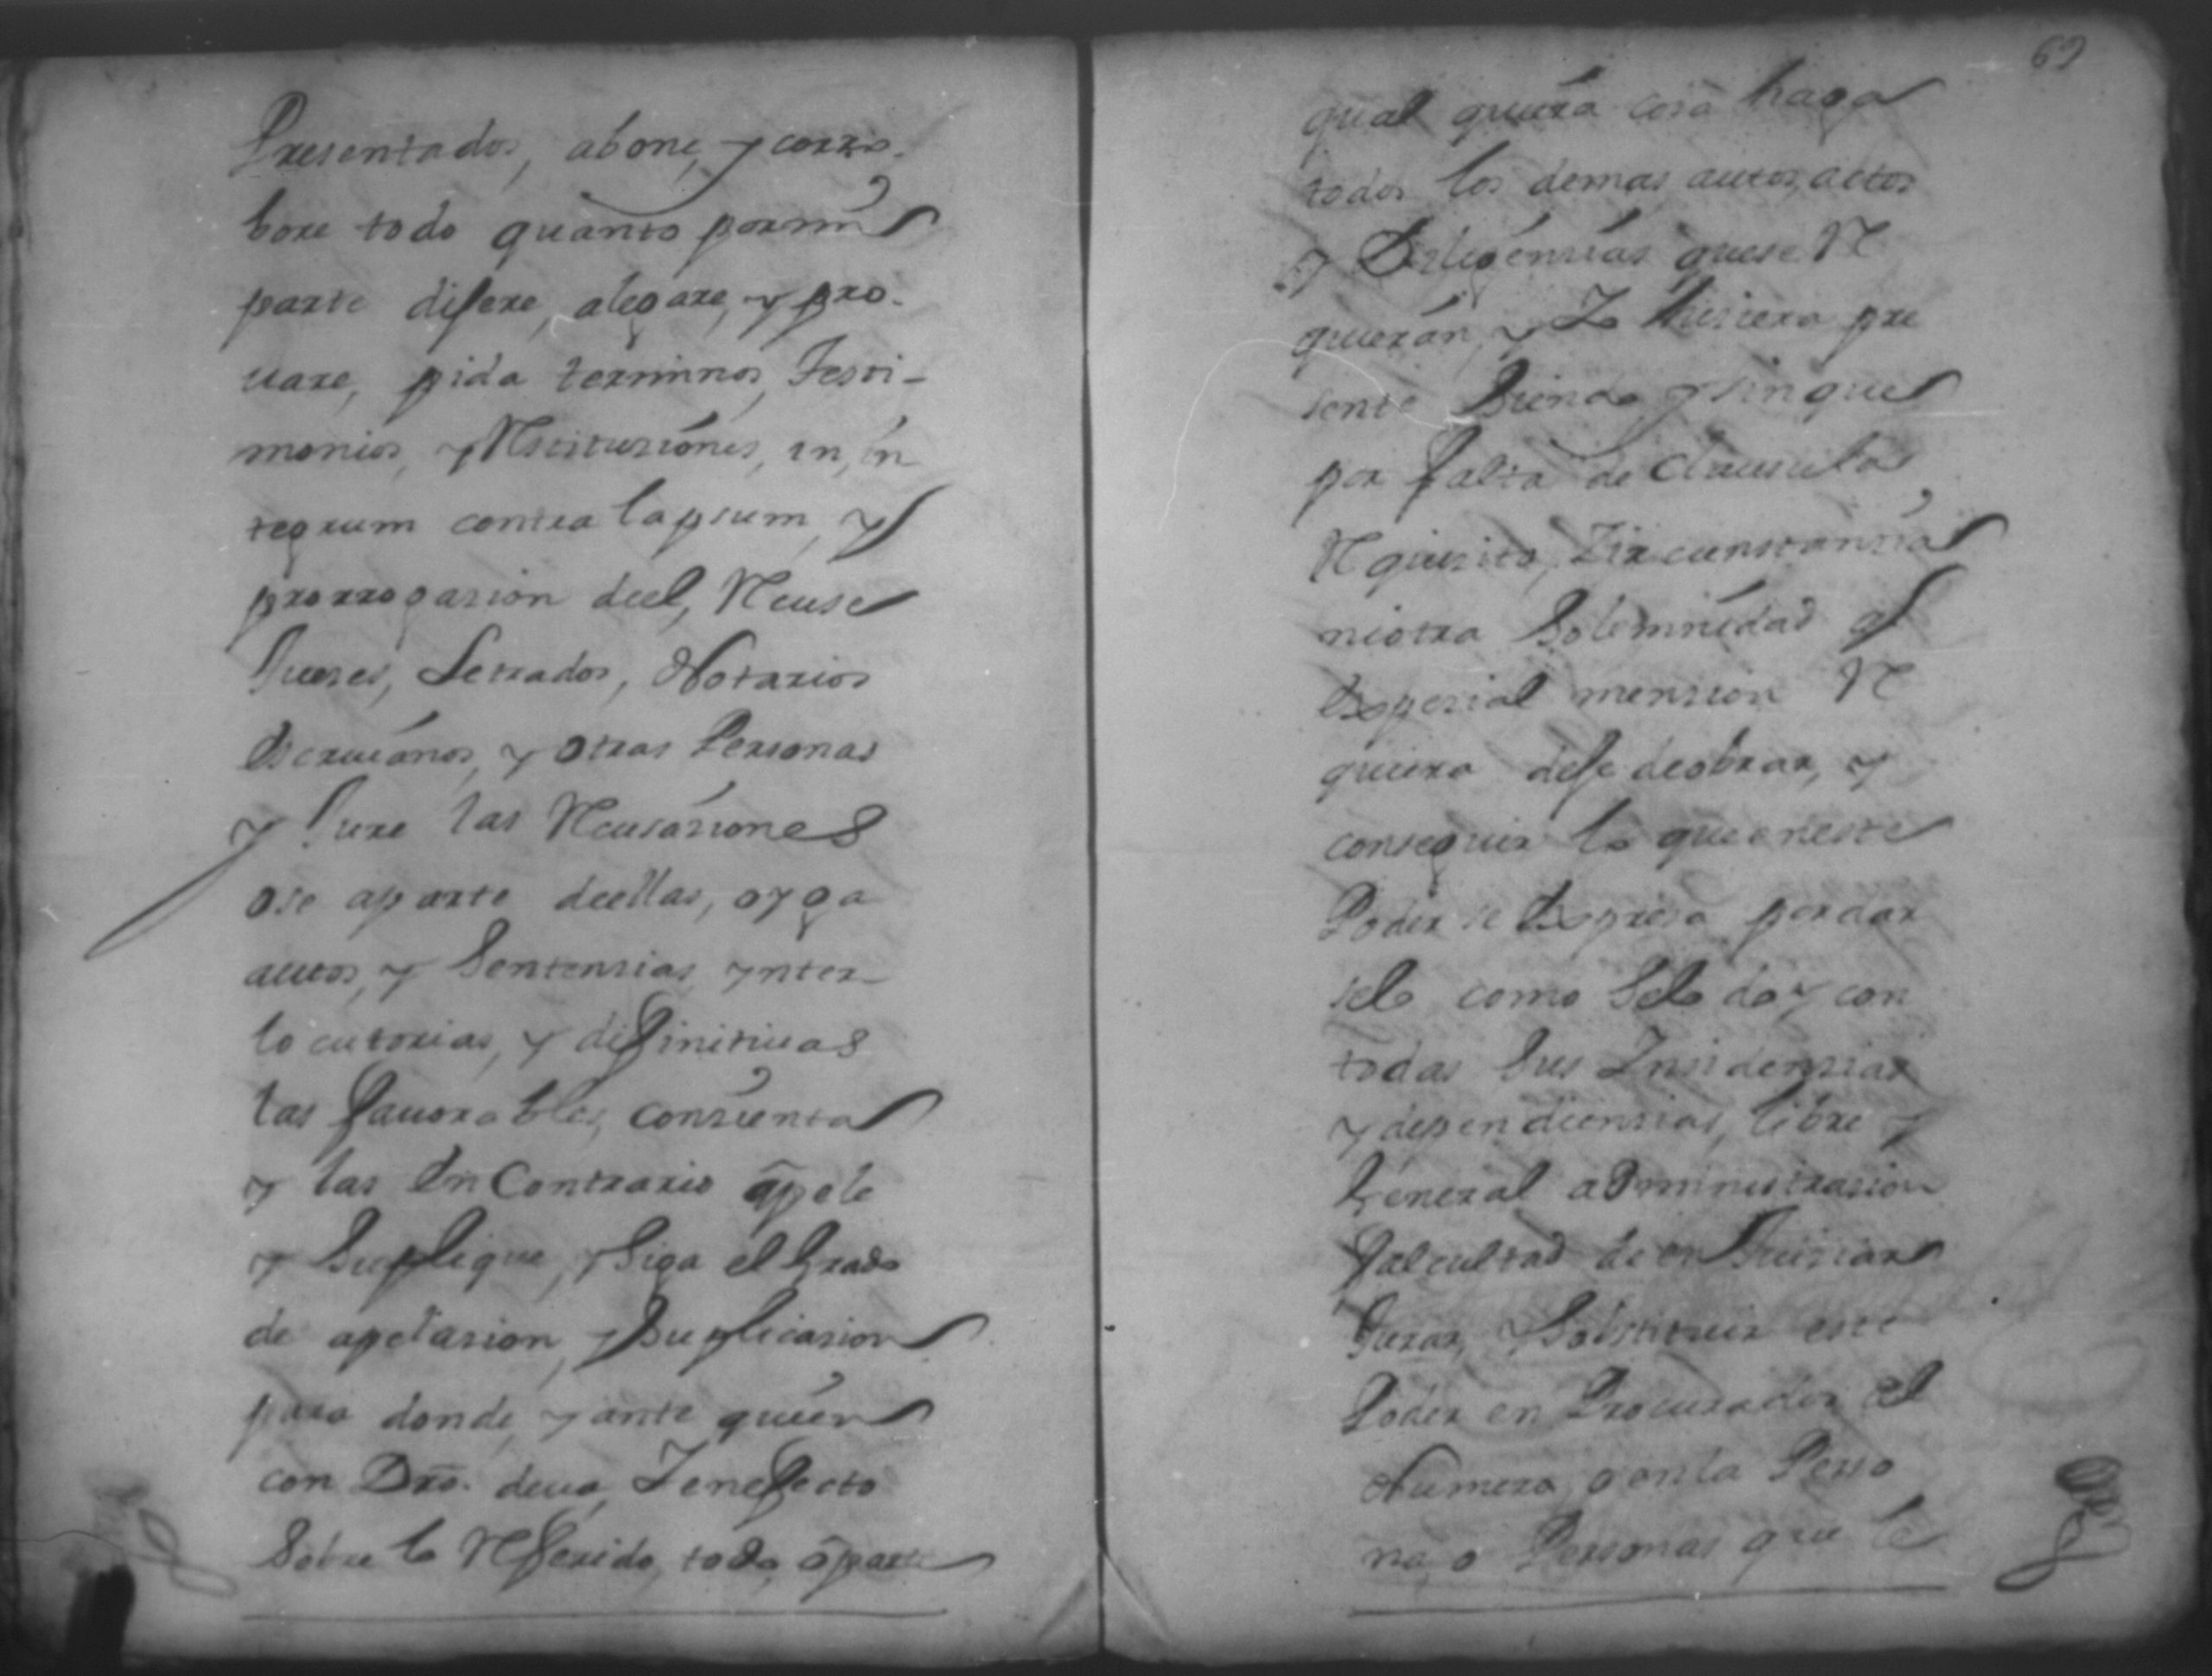 Presentados, abone, y corro-
bore todo quanto por mi
parte dijere, alegare, y pro-
uare, pida terminos, Testi-
monios, y Restitusiónes, in, in
tegrum contra lapsum, y
prorrogasion deel, Recuse
Jueses, Letrados, Notarios
Escriuános, y otras Personas
y Jure las Recusásiones
ose aparte deellas, oyga
autos, y Sentensias, ynter-
locutorias, y difinitiuas
las fauorables, consienta
y las En Contrario apele
y Suplique, y Siga el Grado
de apelasion, y Suplicasion
para donde, y ante quien
con Dro. deua, Ten efecto
Sobre lo Referido, todo, o parte
69
qual quiera cosa haga
todos los demas autos, actos
y Diligénsias que se Re
quieran, y Yo hisiera pre
sente Siendo y sin que
por falta de Clausula
Requisito, Zircunstansia
ni otra Solemnidad q
Espesial mension Re
quiera deje de obrar, y
conseguir lo que en este
Poder se Espresa por dar
selo como Selo doy con
todas Sus Insidensias
y dependiensias, libre y
General administrasion
falcultad de en Juisiar
Jurar, y Sobstituir este
Poder en Procurador del
Numero, o en la Perso
na, o Personas que le